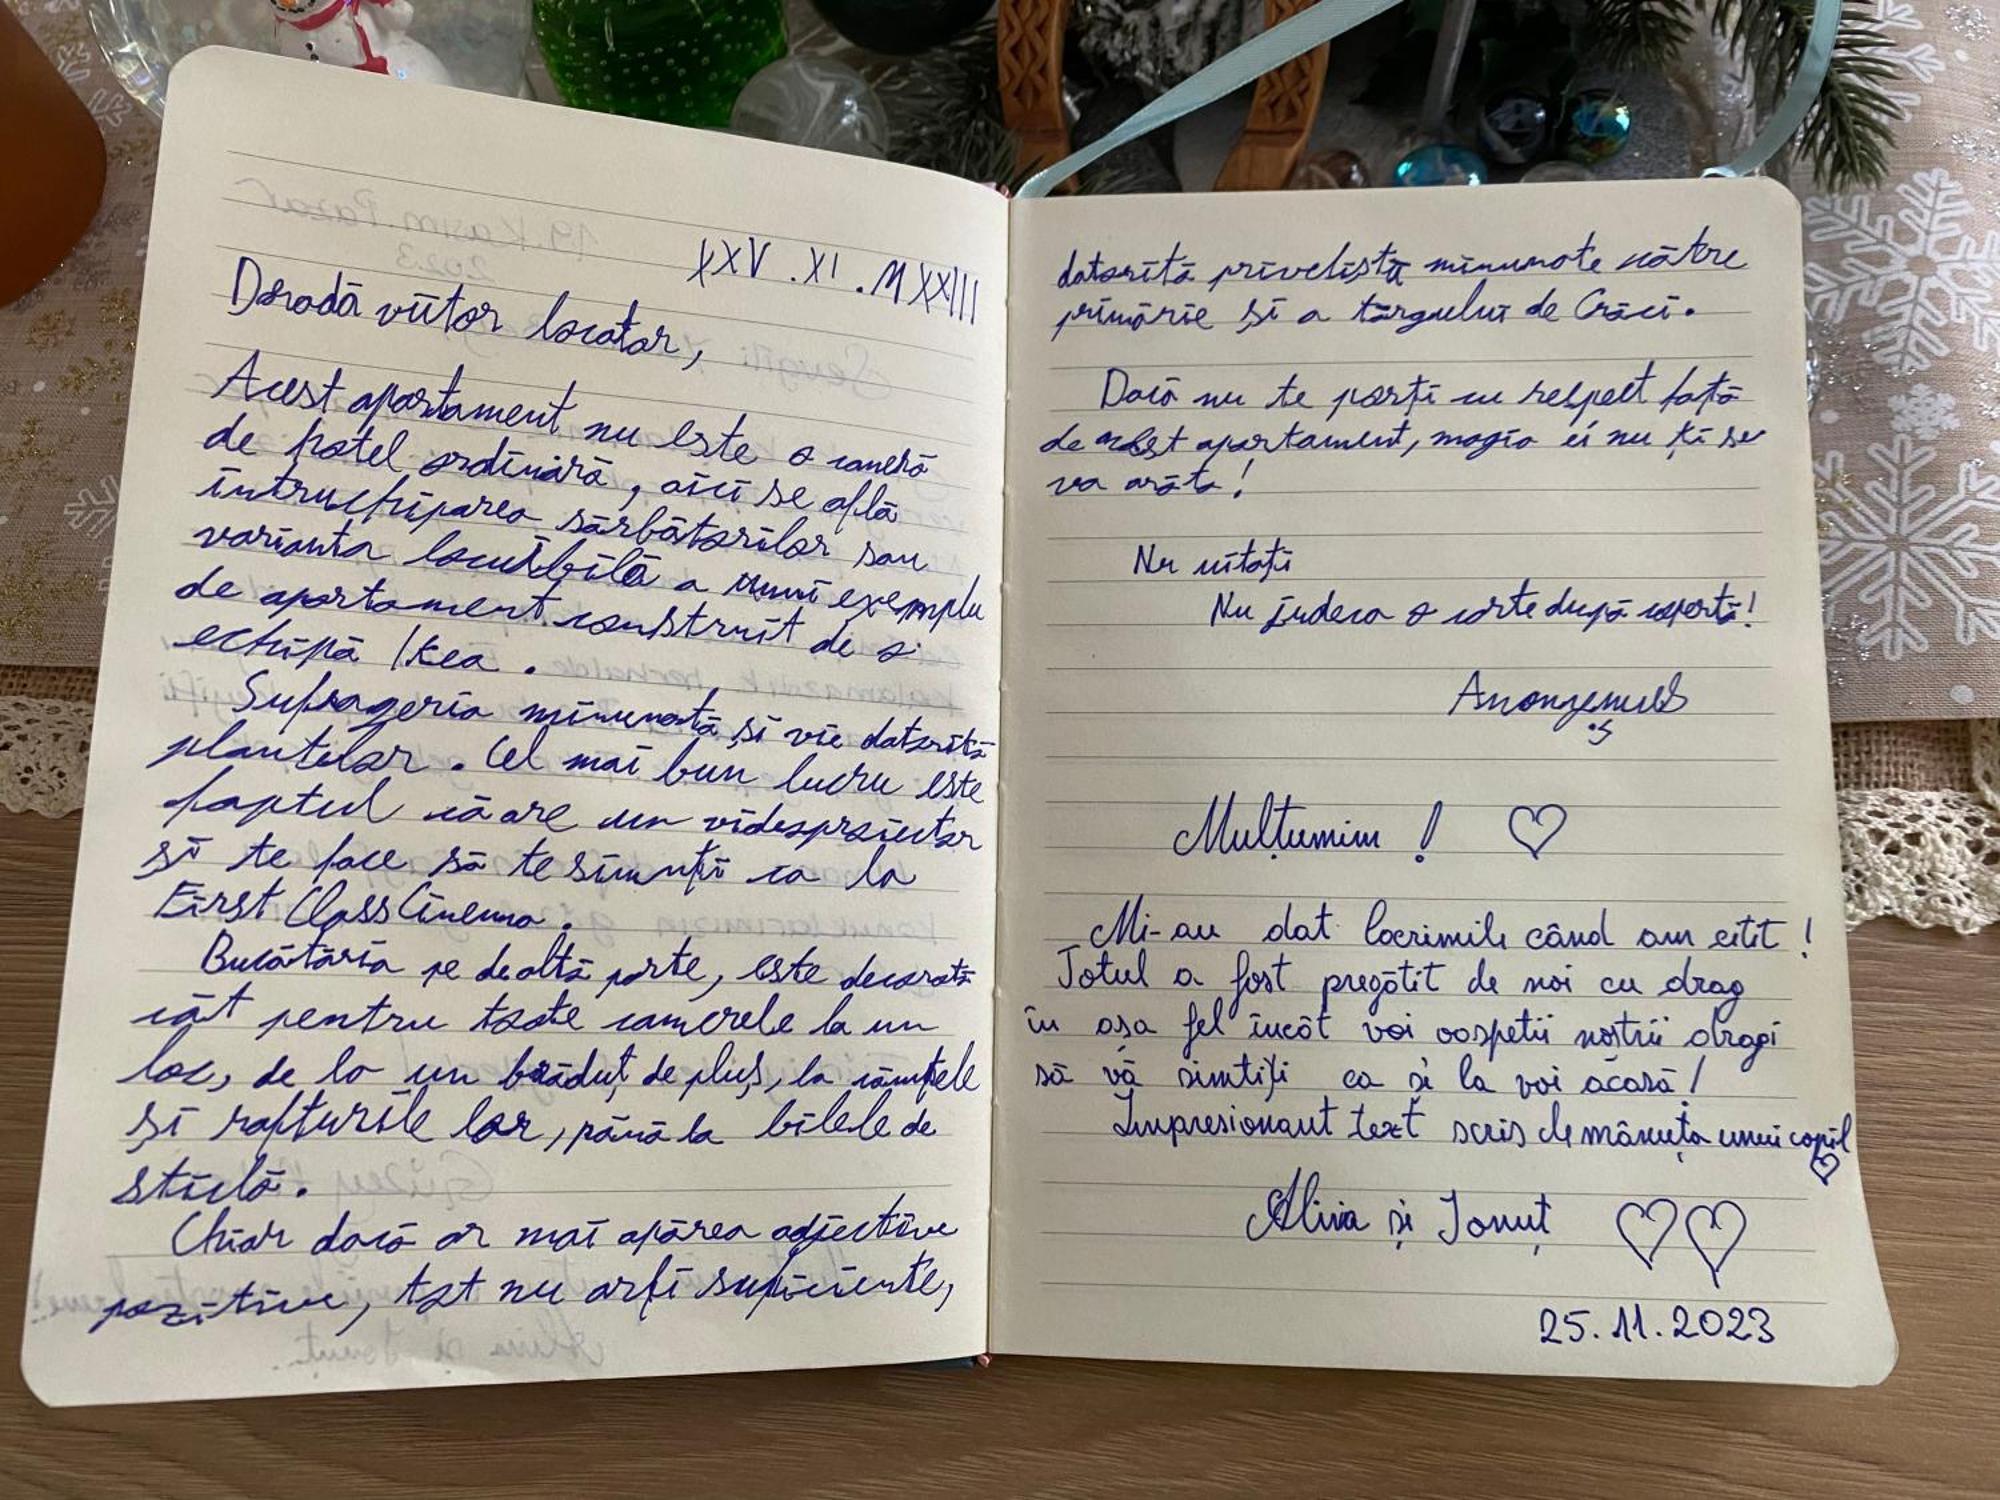 XXV.XI.MXXIII
Doradă viitor locatar,
Acest apartament nu este o cameră
de hotel ordinară, aici se află
întruchiparea sărbătorilor sau
varianta locuibilă a unui exemplu
de apartament construit de o
echipă Ikea.
Sufrageria minunată și vie datorită
plantelor. Cel mai bun lucru este
faptul că are un videoproiector
și te face să te simți ca la
First Class Cinema.
Bucătăria pe de altă parte, este decorată
cât pentru toate camerele la un
loc, de la un brăduț de pluș, la
și rafturile lor, până la bilele de
sticlă.
Chiar dacă ar mai apărea adjective
pozitive, tot nu ar fi suficiente,
datorită priveliștii minunate către
primărie și a târgului de Crăci.
Dacă nu te porți cu respect față
de acest apartament, magia ei nu ți se
va arăta!
Nu uitați
Nu judeca o carte după copertă!
Mulțumim! ♡
Mi-au dat lacrimile când am citit!
Totul a fost pregătit de noi cu drag
în așa fel încât voi oaspetii noștrii dragi
să vă simtiți ca și la voi acasă!
Impresionant text scris de mânuța unui copil
♡
Alina și Ionuț ♡♡
25.11.2023